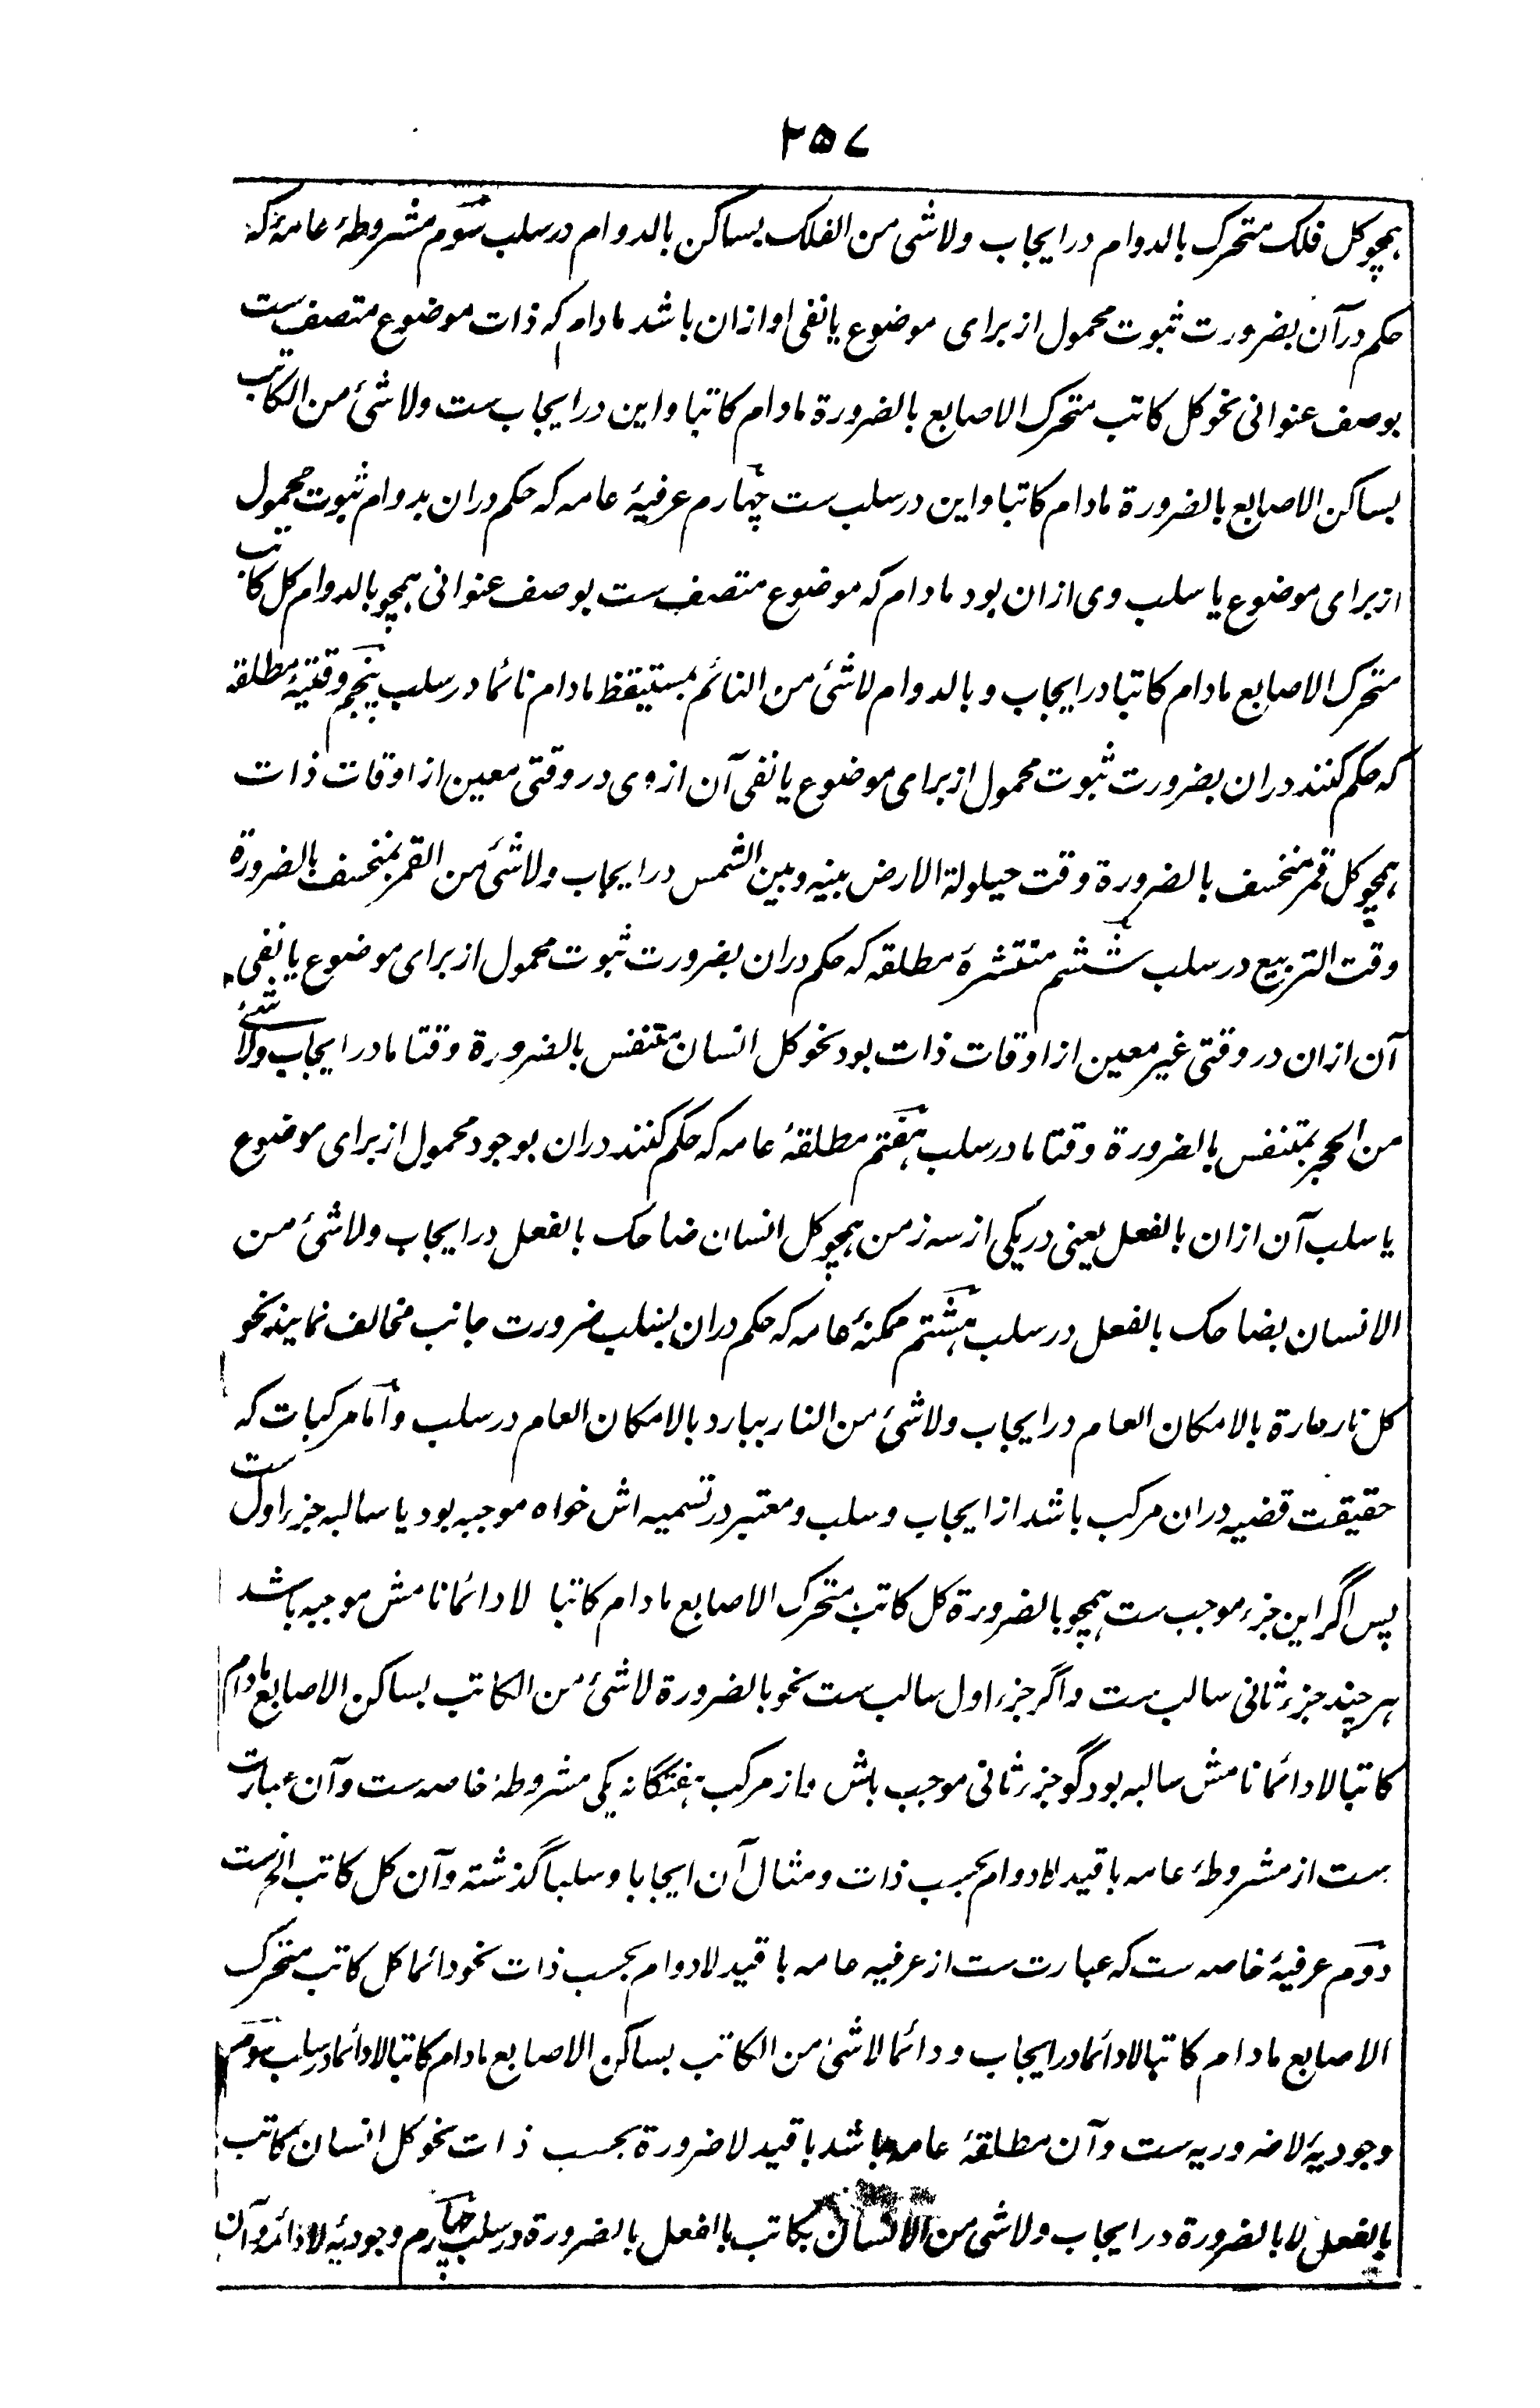 ۲۵۷
همچو کل فلک متحرک بالدوام در ایجاب ولاشی من الفلک بساکن بالدوام در سلب سوم مشروطهٔ عامهٔ که
حکم در آن بضرورت ثبوت محمول از برای موضوع یا نفی او ازان باشد مادام که ذات موضوع متصف ست
بوصف عنوانی نحو کل کاتب متحرک الاصابع بالضرورة مادام کاتبا و این در ایجاب ست ولاشئ من الکاتب
بساکن الاصابع بالضرورة مادام کاتبا و این در سلب ست چهارم عرفیهٔ عامه که حکم دران بدوام ثبوت محمول
از برای موضوع یا سلب وی ازان بود مادام که موضوع متصف ست بوصف عنوانی همچو بالدوام کل کاتب
متحرک الاصابع مادام کاتبا در ایجاب و بالدوام لاشئ من النائم بمستیقظ مادام نائما در سلب پنجم وقتیهٔ مطلقه
که حکم کنند دران بضرورت ثبوت محمول از برای موضوع یا نفی آن از وی در وقتی معین از اوقات ذات
همچو کل قمر منخسف بالضرورة وقت حیلولة الارض بینه وبین الشمس در ایجاب ولاشئ من القمر بمنخسف بالضرورة
وقت التربیع در سلب ششم منتشرهٔ مطلقه که حکم دران بضرورت ثبوت محمول از برای موضوع یا نفی
آن ازان در وقتی غیر معین از اوقات ذات بود نحو کل انسان متنفس بالضرورة وقتا ما در ایجاب ولاشئ
من الحجر بمتنفس بالضرورة وقتا ما در سلب هفتم مطلقهٔ عامه که حکم کنند دران بوجود محمول از برای موضوع
یا سلب آن ازان بالفعل یعنی در یکی از سه زمن همچو کل انسان ضاحک بالفعل در ایجاب ولاشئ من
الانسان بضاحک بالفعل در سلب هشتم ممکنهٔ عامه که حکم دران بسلب ضرورت جانب مخالف نمایند نحو
کل نار حارة بالامکان العام در ایجاب ولاشئ من النار ببارد بالامکان العام در سلب و اما مرکبات که
حقیقت قضیه دران مرکب باشد از ایجاب و سلب و معتبر در تسمیه اش خواه موجبه بود یا سالبه جزء اول ست
پس اگر این جزء موجب ست همچو بالضرورة کل کاتب متحرک الاصابع مادام کاتبا لا دائما نامش موجبه باشد
هر چند جزء ثانی سالب ست و اگر جزء اول سالب ست نحو بالضرورة لاشئ من الکاتب بساکن الاصابع مادام
کاتبا لا دائما نامش سالبه بود گو جزء ثانی موجب باش و از مرکب هفتگانه یکی مشروطهٔ خاصه ست و آن عبارت
ست از مشروطهٔ عامه با قید لادوام بحسب ذات و مثال آن ایجابا و سلبا گذشته و آن کل کاتب الخ ست
دوم عرفیهٔ خاصه ست که عبارت ست از عرفیه عامه با قید لادوام بحسب ذات نحو دائما کل کاتب متحرک
الاصابع مادام کاتبا لا دائما در ایجاب و دائما لاشئ من الکاتب بساکن الاصابع مادام کاتبا لا دائما در سلب سوم
وجودیهٔ لاضروریه ست و آن مطلقهٔ عامه باشد با قید لاضرورة بحسب ذات نحو کل انسان کاتب
بالفعل لا بالضرورة در ایجاب ولاشئ من الانسان بکاتب بالفعل بالضرورة در سلب چهارم وجودیهٔ لادائمه و آن